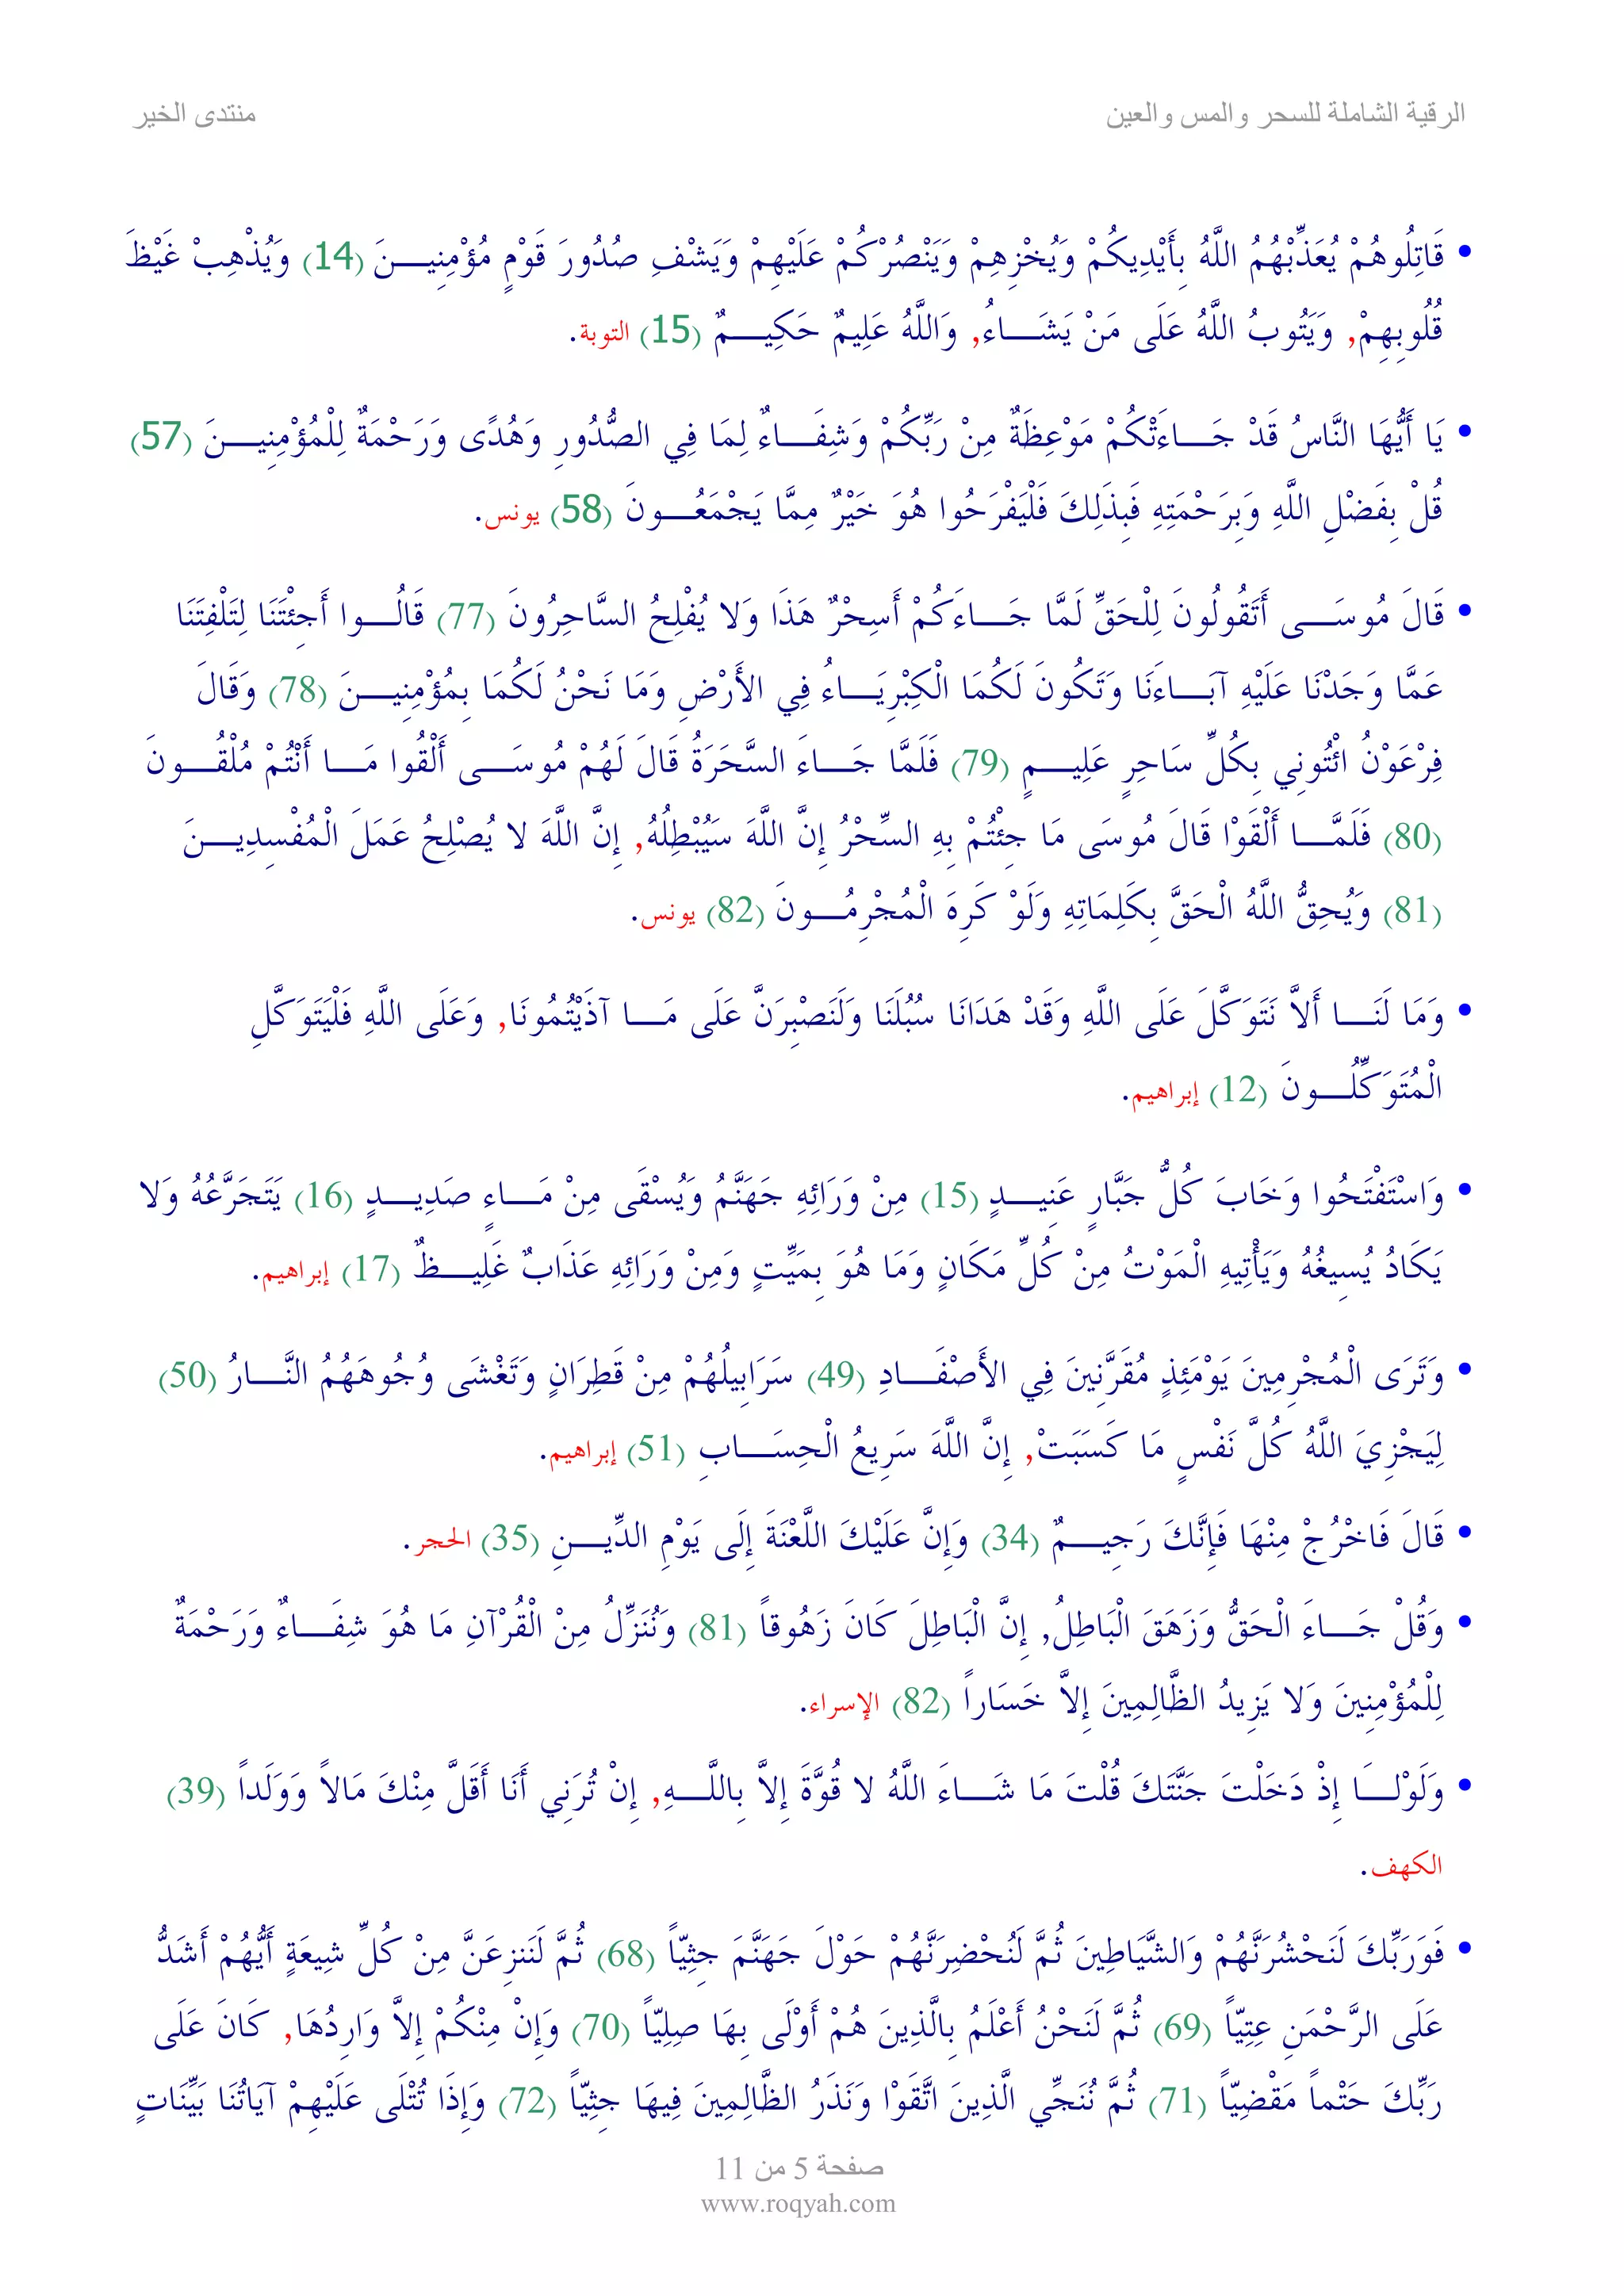 الرقية الشاملة للسحر والمس والعين
منتدى الخير
• قَاتِلُوهُمْ يُعَذِّبْهُمُ اللَّهُ بِأَيْدِيكُمْ وَيُخْزِهِمْ وَيَنْصُرْكُمْ عَلَيْهِمْ وَيَشْفِ صُدُورَ قَوْمٍ مُؤْمِنِيـــنَ (14) وَيُذْهِبْ غَيْظَ
قُلُوبِهِمْ, وَيَتُوبُ اللَّهُ عَلَى مَنْ يَشَـــاءُ, وَاللَّهُ عَلِيمٌ حَكِيـــمٌ (15) التوبة.
• يَا أَيُّهَا النَّاسُ قَدْ جَـــاءَتْكُمْ مَوْعِظَةٌ مِنْ رَبِّكُمْ وَشِفَـــاءٌ لِمَا فِي الصُّدُورِ وَهُدًى وَرَحْمَةٌ لِلْمُؤْمِنِيـــنَ (57)
قُلْ بِفَضْلِ اللَّهِ وَبِرَحْمَتِهِ فَبِذَلِكَ فَلْيَفْرَحُوا هُوَ خَيْرٌ مِمَّا يَجْمَعُـــونَ (58) يونس.
• قَالَ مُوسَـــى أَتَقُولُونَ لِلْحَقِّ لَمَّا جَـــاءَكُمْ أَسِحْرٌ هَذَا وَلا يُفْلِحُ السَّاحِرُونَ (77) قَالُـــوا أَجِئْتَنَا لِتَلْفِتَنَا
عَمَّا وَجَدْنَا عَلَيْهِ آبَـــاءَنَا وَتَكُونَ لَكُمَا الْكِبْرِيَـــاءُ فِي الأَرْضِ وَمَا نَحْنُ لَكُمَا بِمُؤْمِنِيـــنَ (78) وَقَالَ
فِرْعَوْنُ ائْتُونِي بِكُلِّ سَاحِرٍ عَلِيـــمٍ (79) فَلَمَّا جَـــاءَ السَّحَرَةُ قَالَ لَهُمْ مُوسَـــى أَلْقُوا مَـــا أَنْتُمْ مُلْقُـــونَ
(80) فَلَمَّـــا أَلْقَوْا قَالَ مُوسَى مَا جِئْتُمْ بِهِ السِّحْرُ إِنَّ اللَّهَ سَيُبْطِلُهُ, إِنَّ اللَّهَ لا يُصْلِحُ عَمَلَ الْمُفْسِدِيـــنَ
(81) وَيُحِقُّ اللَّهُ الْحَقَّ بِكَلِمَاتِهِ وَلَوْ كَرِهَ الْمُجْرِمُـــونَ (82) يونس.
• وَمَا لَنَـــا أَلاَّ نَتَوَكَّلَ عَلَى اللَّهِ وَقَدْ هَدَانَا سُبُلَنَا وَلَنَصْبِرَنَّ عَلَى مَـــا آذَيْتُمُونَا, وَعَلَى اللَّهِ فَلْيَتَوَكَّلِ
الْمُتَوَكِّلُـــونَ (12) إبراهيم.
• وَاسْتَفْتَحُوا وَخَابَ كُلُّ جَبَّارٍ عَنِيـــدٍ (15) مِنْ وَرَائِهِ جَهَنَّمُ وَيُسْقَى مِنْ مَـــاءٍ صَدِيـــدٍ (16) يَتَجَرَّعُهُ وَلا
يَكَادُ يُسِيغُهُ وَيَأْتِيهِ الْمَوْتُ مِنْ كُلِّ مَكَانٍ وَمَا هُوَ بِمَيِّتٍ وَمِنْ وَرَائِهِ عَذَابٌ غَلِيـــظٌ (17) إبراهيم.
• وَتَرَى الْمُجْرِمِينَ يَوْمَئِذٍ مُقَرَّنِينَ فِي الأَصْفَـــادِ (49) سَرَابِيلُهُمْ مِنْ قَطِرَانٍ وَتَغْشَى وُجُوهَهُمُ النَّـــارُ (50)
لِيَجْزِيَ اللَّهُ كُلَّ نَفْسٍ مَا كَسَبَتْ, إِنَّ اللَّهَ سَرِيعُ الْحِسَـــابِ (51) إبراهيم.
• قَالَ فَاخْرُجْ مِنْهَا فَإِنَّكَ رَجِيـــمٌ (34) وَإِنَّ عَلَيْكَ اللَّعْنَةَ إِلَى يَوْمِ الدِّيـــنِ (35) الحجر.
• وَقُلْ جَـــاءَ الْحَقُّ وَزَهَقَ الْبَاطِلُ, إِنَّ الْبَاطِلَ كَانَ زَهُوقاً (81) وَنُنَزِّلُ مِنْ الْقُرْآنِ مَا هُوَ شِفَـــاءٌ وَرَحْمَةٌ
لِلْمُؤْمِنِينَ وَلا يَزِيدُ الظَّالِمِينَ إِلاَّ خَسَاراً (82) الإسراء.
• وَلَوْلـــَا إِذْ دَخَلْتَ جَنَّتَكَ قُلْتَ مَا شَـــاءَ اللَّهُ لا قُوَّةَ إِلاَّ بِاللَّـــهِ, إِنْ تُرَنِي أَنَا أَقَلَّ مِنْكَ مَالاً وَوَلَداً (39)
الكهف.
• فَوَرَبِّكَ لَنَحْشُرَنَّهُمْ وَالشَّيَاطِينَ ثُمَّ لَنُحْضِرَنَّهُمْ حَوْلَ جَهَنَّمَ جِثِيّاً (68) ثُمَّ لَنَنزِعَنَّ مِنْ كُلِّ شِيعَةٍ أَيُّهُمْ أَشَدُّ
عَلَى الرَّحْمَنِ عِتِيّاً (69) ثُمَّ لَنَحْنُ أَعْلَمُ بِالَّذِينَ هُمْ أَوْلَى بِهَا صِلِيّاً (70) وَإِنْ مِنْكُمْ إِلاَّ وَارِدُهَا, كَانَ عَلَى
رَبِّكَ حَتْماً مَقْضِيّاً (71) ثُمَّ نُنَجِّي الَّذِينَ اتَّقَوْا وَنَذَرُ الظَّالِمِينَ فِيهَا جِثِيّاً (72) وَإِذَا تُتْلَى عَلَيْهِمْ آيَاتُنَا بَيِّنَاتٍ
صفحة 5 من 11
www.roqyah.com